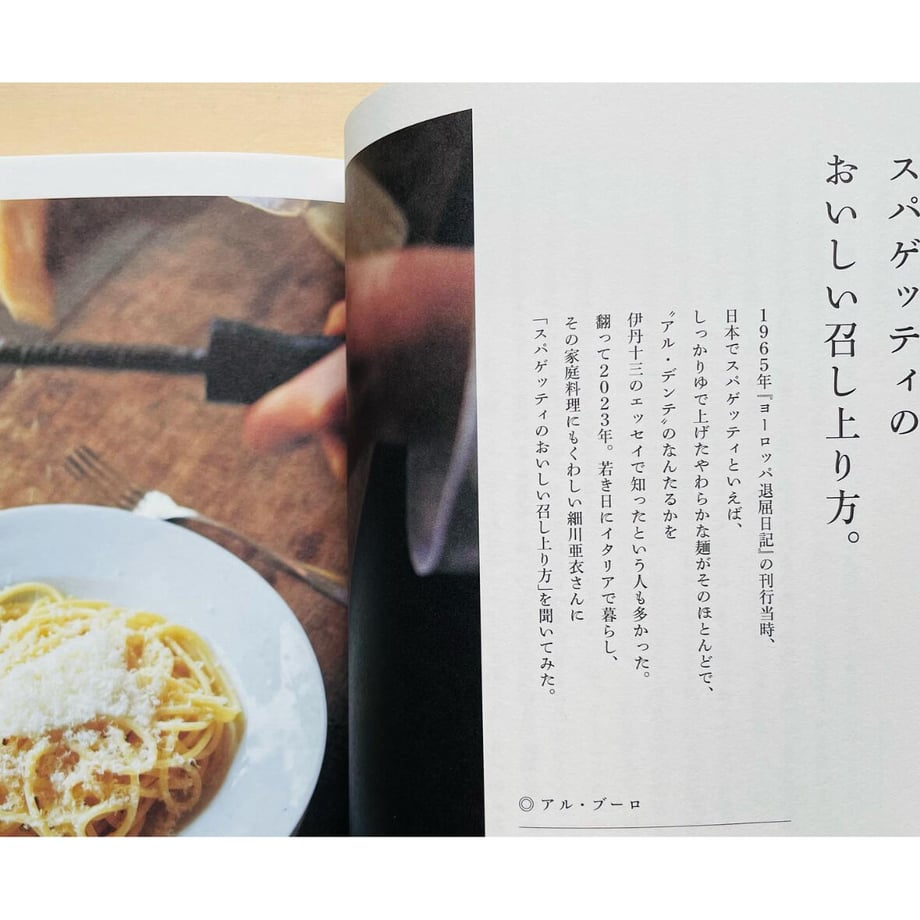 スパゲッティの
おいしい召し上り方。
1965年『ヨーロッパ退屈日記』の刊行当時、
日本でスパゲッティといえば、
しっかりゆで上げたやわらかな麺がそのほとんどで、
〝アル・デンテ〟のなんたるかを
伊丹十三のエッセイで知ったという人も多かった。
翻って2023年。若き日にイタリアで暮らし、
その家庭料理にもくわしい細川亜衣さんに
「スパゲッティのおいしい召し上り方」を聞いてみた。
◎アル・ブーロ